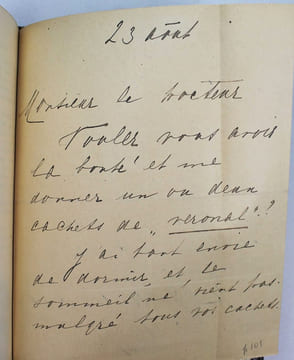 23 août
Monsieur le Docteur
Vouler vous avoir
la bonté et me
donner un ou deux
cachets de „veronal"?
J'ai tant envie
de dormir, et le
sommeil ne vient pas.
malgré tous vos cachets.